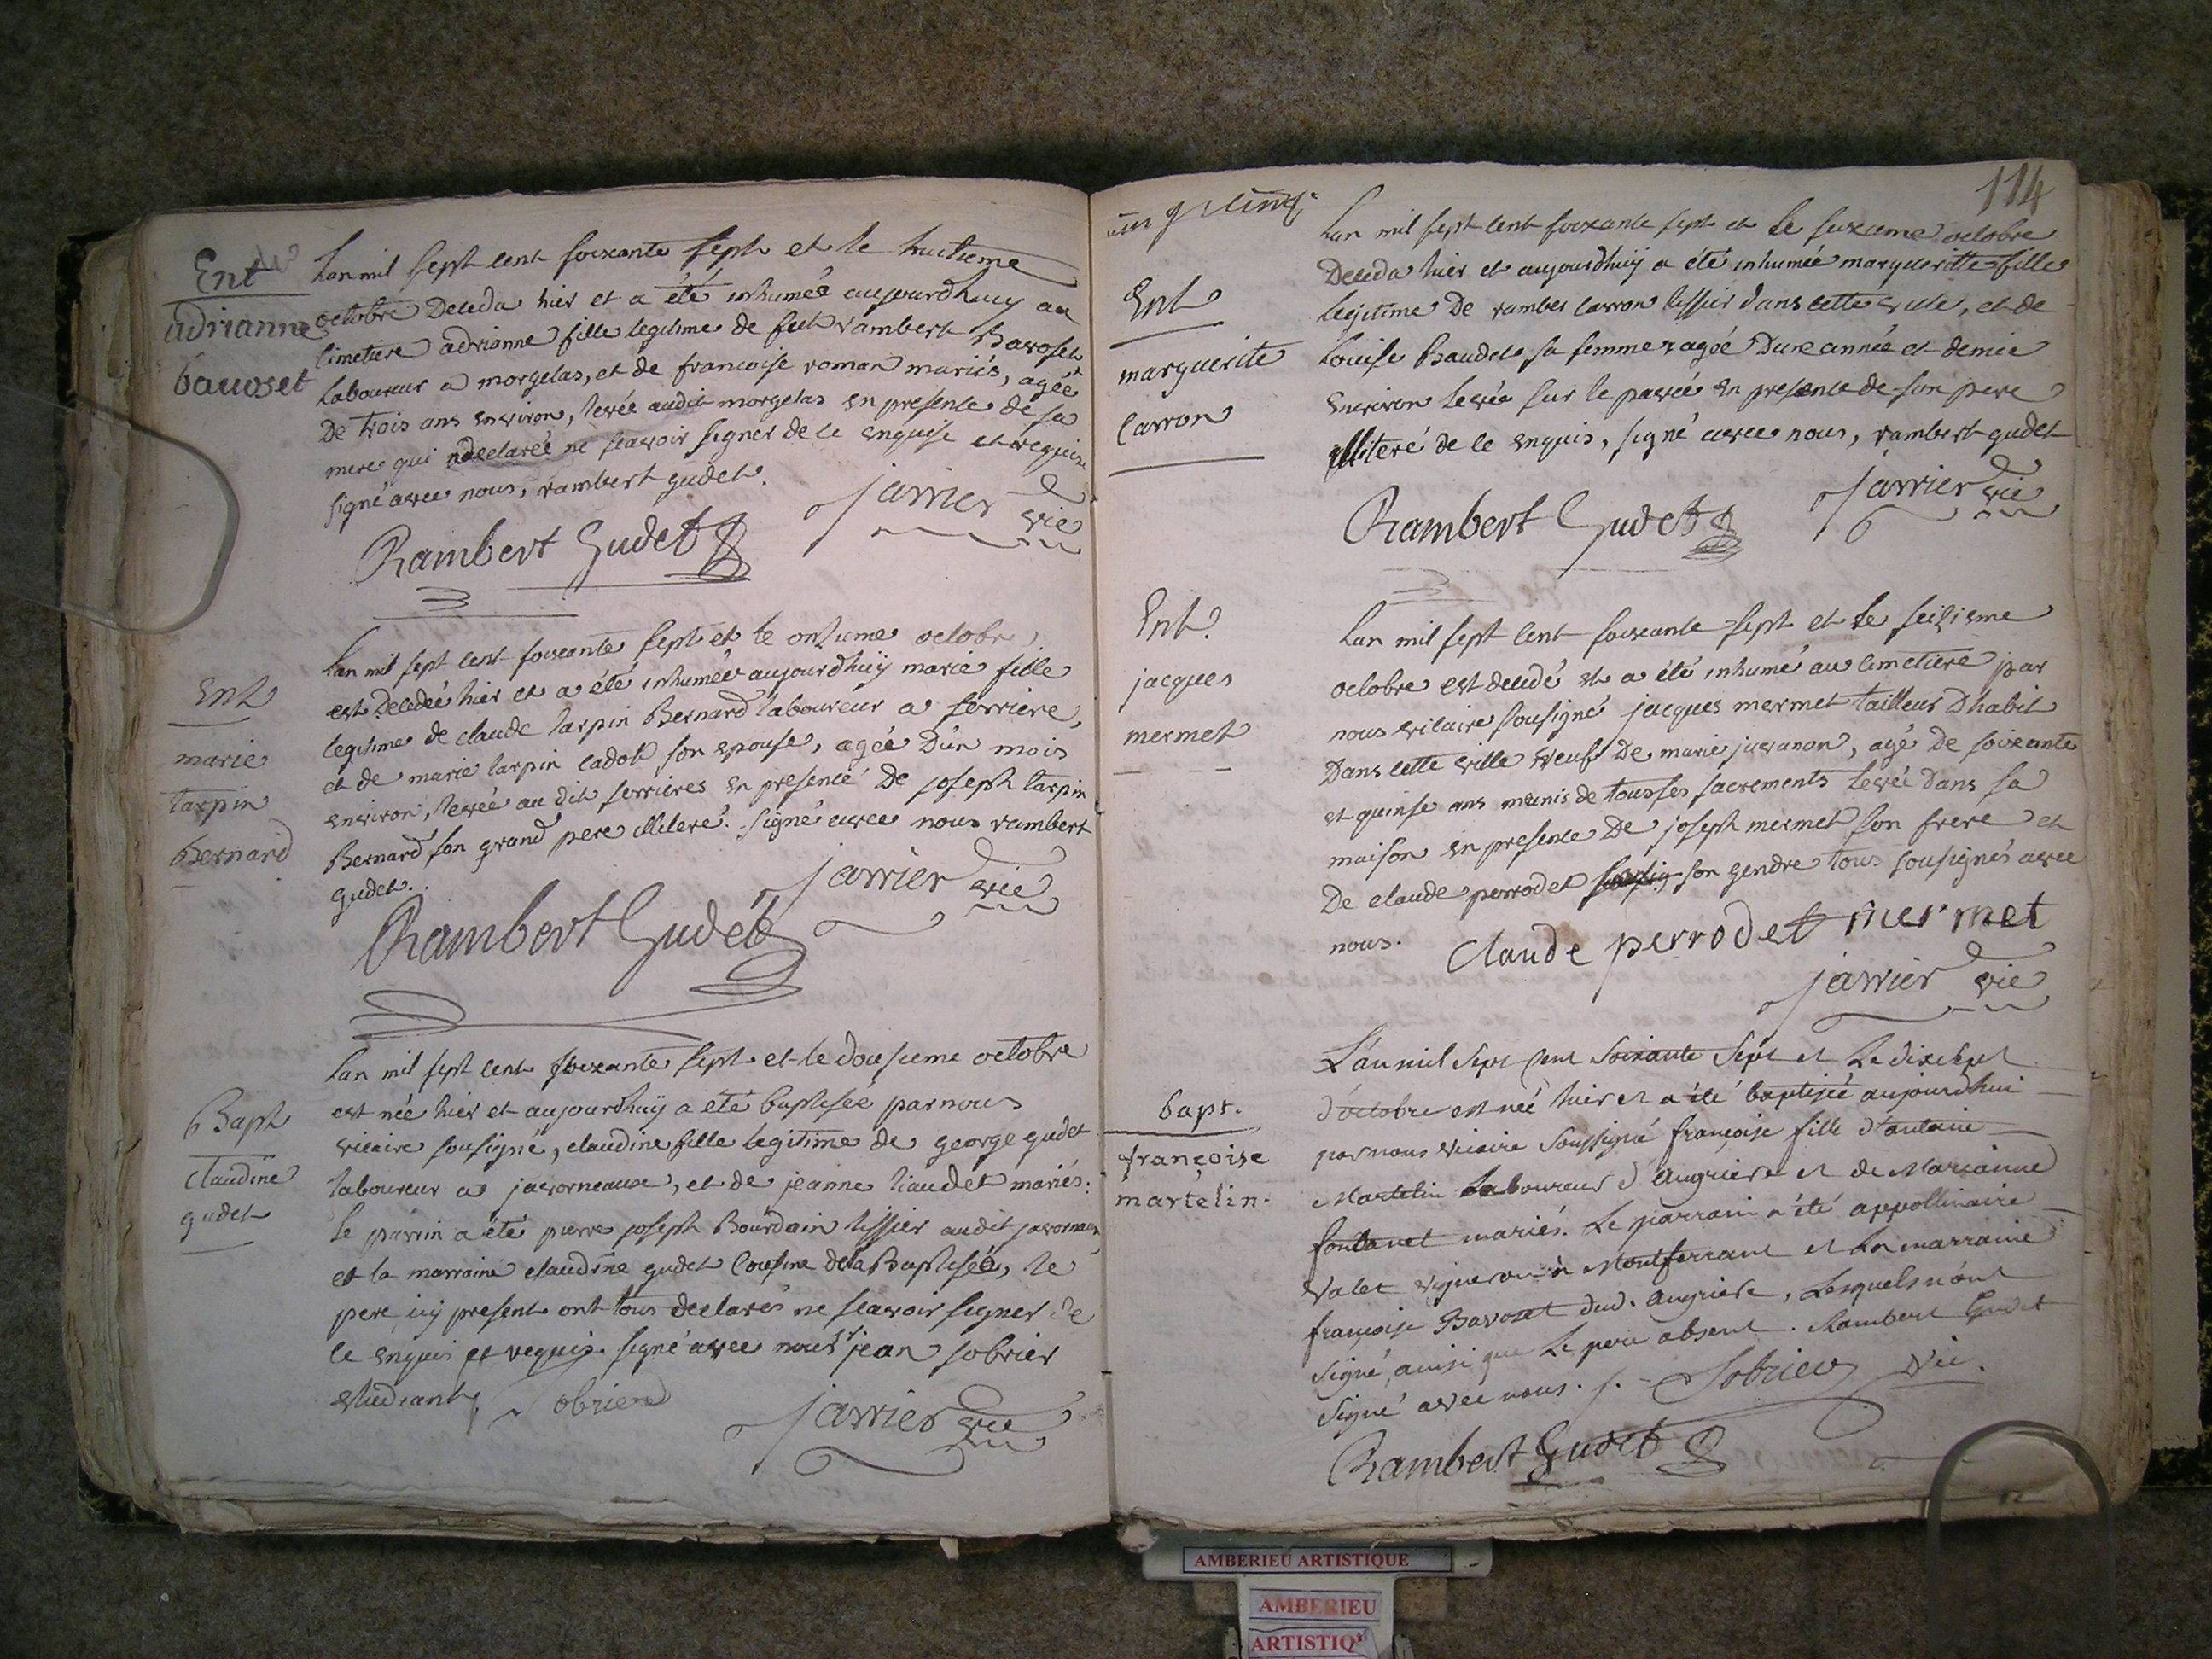 Ent
adrianne
bavoset
Lan mil sept cent soixante sept et le huitieme
octobre Deceda hier et a été inhumée aujourdhuy au
cimetiere adrianne fille legitime de feu rambert Bavoset
laboureur a morgelas, et de francoise roman mariés, agée
De trois ans environ, levée audit morgelas en presence de sa
mere qui a declarée ne scavoir signer de ce enquise et requise
signé avec nous, rambert gudet.
jarrier vic
Rambert Gudet
Ent
marie
tarpin
Bernard
Lan mil sept cent soixante sept et le onsieme octobre
est Decedée hier et a été inhumée aujourdhuy marie fille
legitime de claude tarpin Bernard laboureur a serriere,
et de marie tarpin cadot son epouse, agée D'un mois
environ, levée au dit serrieres en presence De joseph tarpin
Bernard son grand pere illiteré. signé avec nous rambert
gudet.
jarrier vic
Rambert Gudet
Bapt
claudine
gudet
Lan mil sept cent soixante sept et le dousieme octobre
est née hier et aujourdhuy a eté baptisée par nous
vicaire sousigné, claudine fille legitime de george gudet
laboureur a javorneaux, et de jeanne liaudet mariés.
Le parrin a été pierre joseph Bourdain tissier audit javorneaux
et la marraine claudine gudet cousine de la Baptisée, le
pere icy present ont tous declarés ne scavoir signer de
ce enquis et requis. signé avec nous jean sobrier
etudiant, Sobrier
jarrier vic
114
Lan mil sept cent soixante sept et le seixieme octobre
Deceda hier et aujourdhuy a été inhumée marguerite fille
legitime De rambert carron tissier dans cette ville, et de
Louise Baudet sa femme agée D'une année et demie
environ levée sur le pavée en presence de son pere
illiteré de ce enquis, signé avec nous, rambert gudet
Ent
marguerite
carron
jarrier vic
Rambert Gudet
Ent.
jacques
mermet
Lan mil sept cent soixante sept et le seizieme
octobre est decedé et a été inhumé au cimetiere par
nous vicaire sousigné jacques mermet tailleur D'habit
Dans cette ville veuf De marie juvanon, agé de soixante
et quinse ans munis de tous ses sacrements levée dans sa
maison en presence De joseph mermet son frere et
De claude perrodet son gendre tous sousignés avec
nous.
Claude perrodet mermet
jarrier vic
bapt.
françoise
martelin.
L'an mil sept cent soixante sept et le dixsept
d'octobre est née hier et a été baptisée aujourdhui
par nous vicaire soussigné françoise fille d'antoine
Martelin laboureur d'Angrière et de Marianne
fontanet mariés. Le parrain a été appollinaire
Valet vigneron à Montferrant et la marraine
françoise Bavozet dud. Angrière, Lesquels n'ont
signé, ainsi que le pere absent. Rambert Gudet
signé avec nous. Sobrier Vic.
Rambert Gudet
AMBERIEU ARTISTIQUE
AMBERIEU
ARTISTIQ